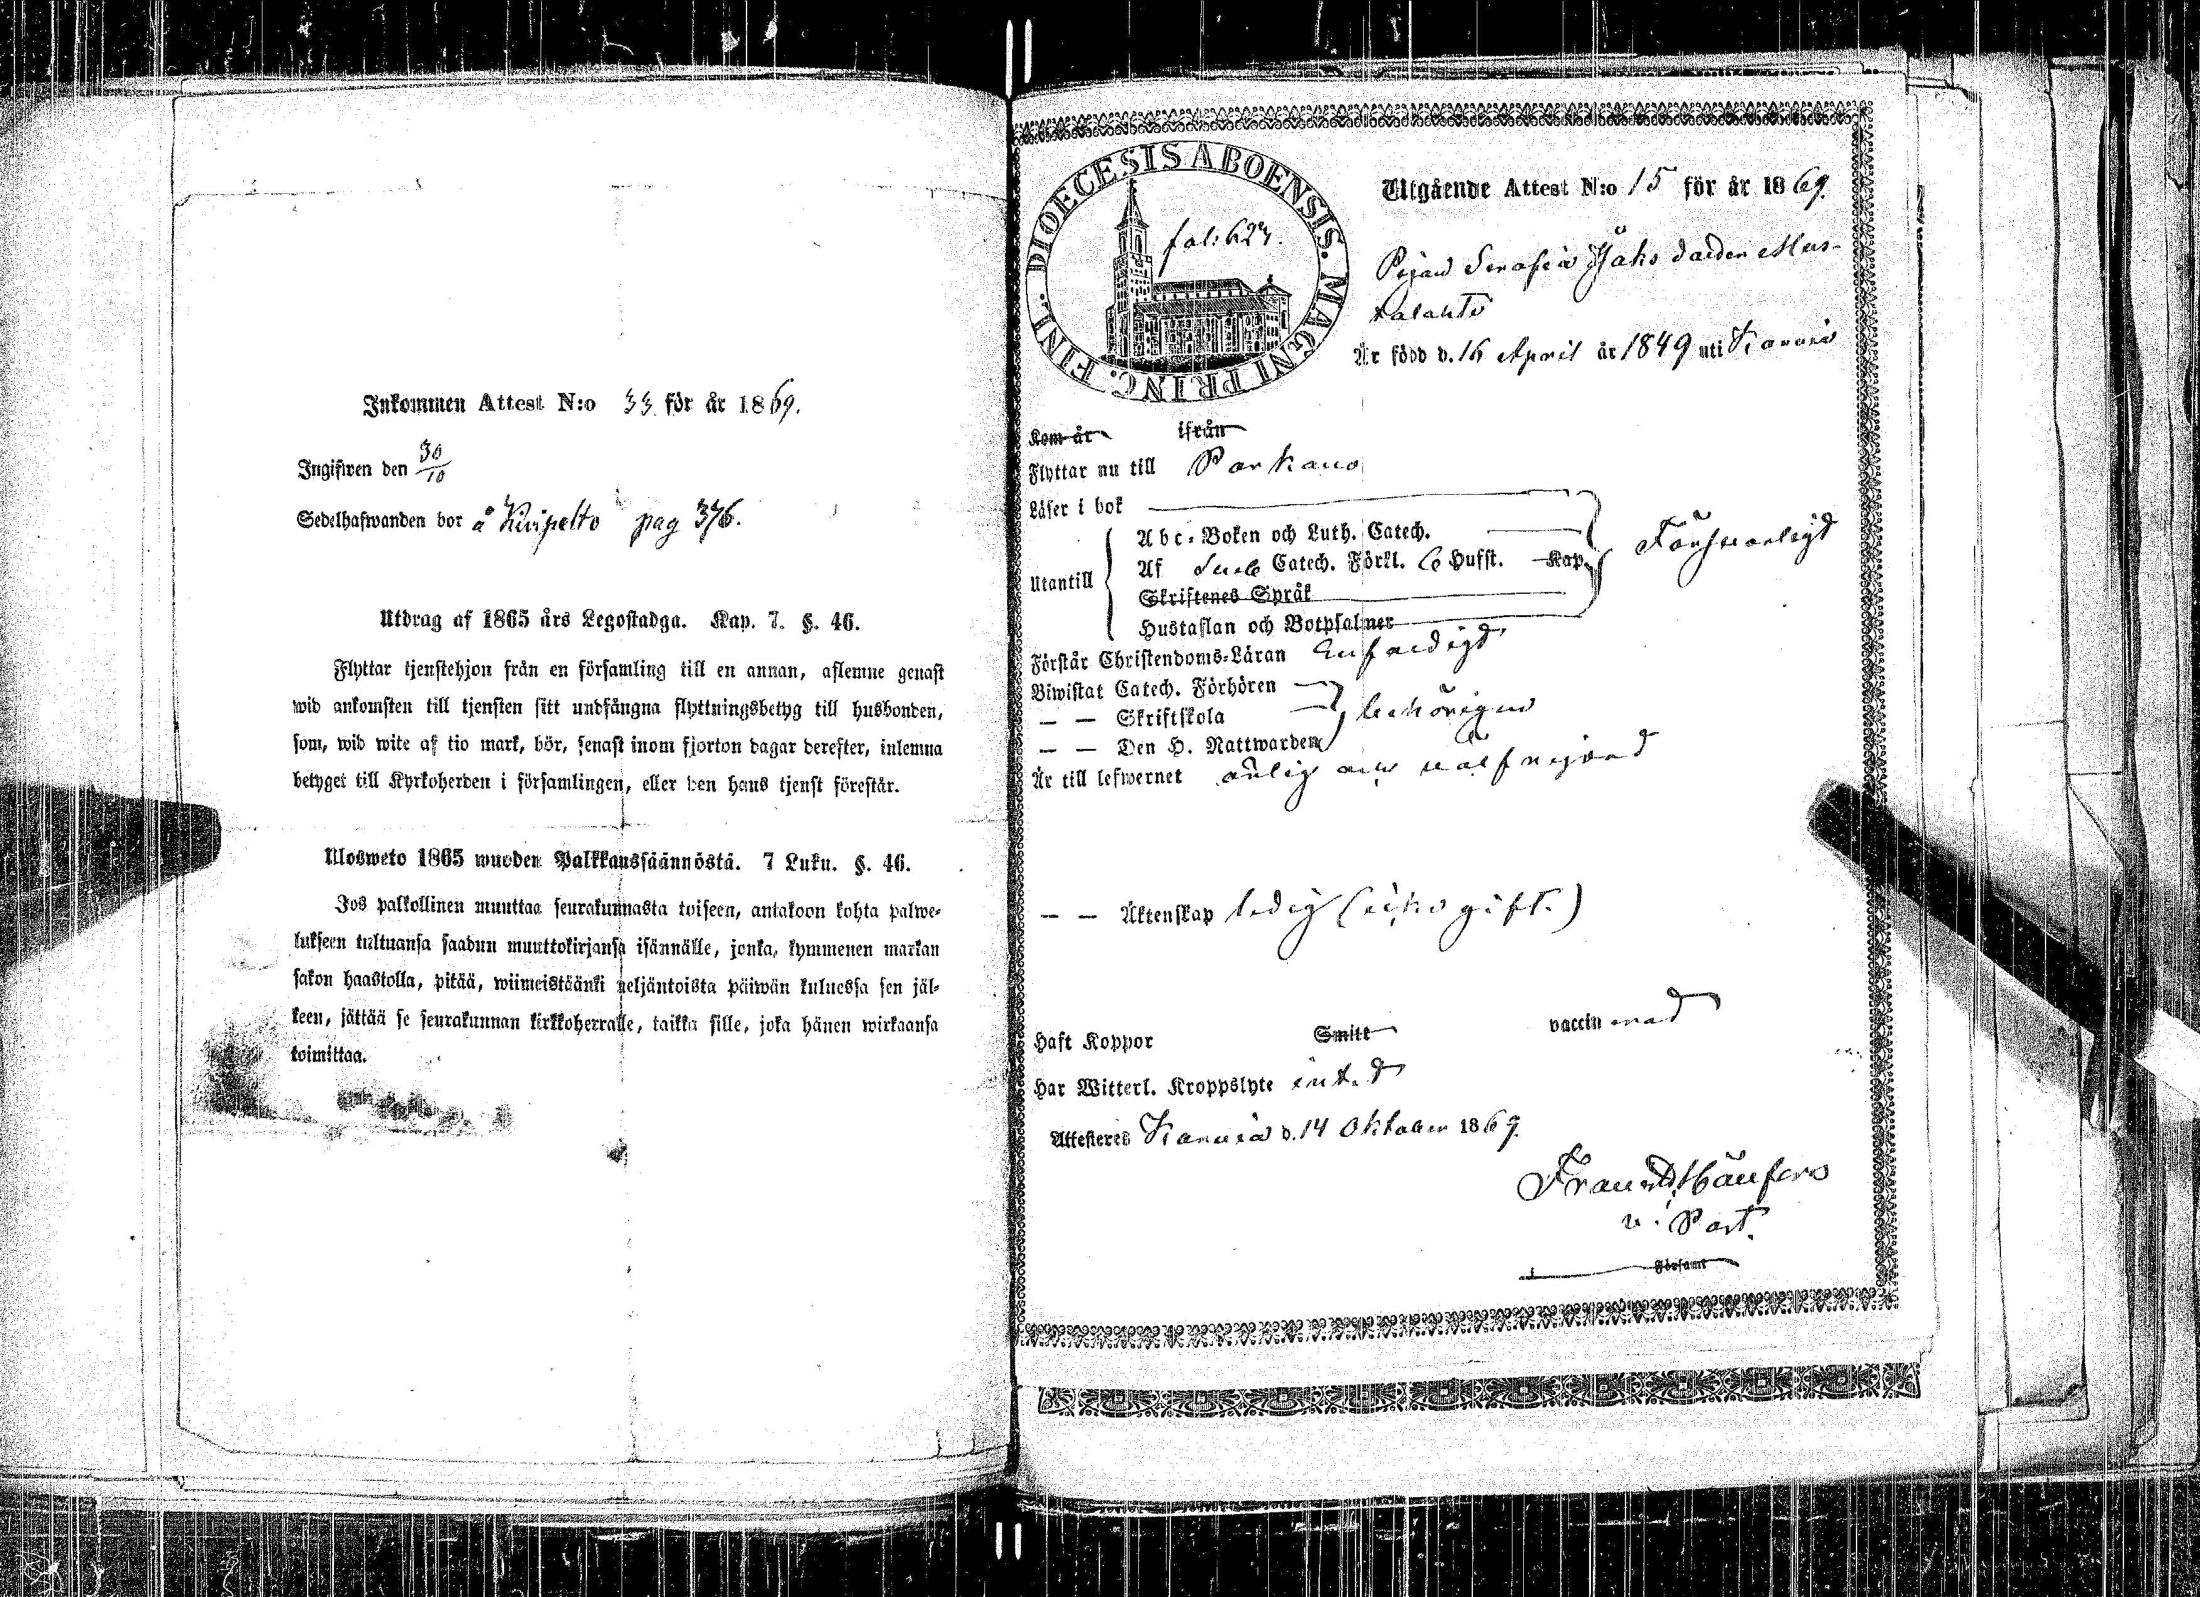 Inkommen Attest N:o 33 för år 1869.
Ingifwen den 30/10
Sedelhafwanden bor å Kivipelto pag 376.
Utdrag af 1865 års Legostadga. Kap. 7. §. 46.
Flyttar tjenstehjon från en församling till en annan, aflemne genast
wid ankomsten till tjensten sitt undfångna flyttningsbetyg till husbonden,
som, wid wite af tio mark, bör, senast inom fjorton dagar derefter, inlemna
betyget till Kyrkoherden i församlingen, eller den hans tjenst förestår.
Ulosweto 1865 wuoden Palkkaussäännöstä. 7 Luku. §. 46.
Jos palkollinen muuttaa seurakunnasta toiseen, antakoon kohta palwe-
lukseen tultuansa saadun muuttokirjansa isännälle, jonka, kymmenen markan
sakon haastolla, pitää, wiimeistäänki neljäntoista päiwän kuluessa sen jäl-
keen, jättää se seurakunnan kirkkoherralle, taikka sille, joka hänen wirkaansa
toimittaa.
DIOECESIS ABOENSIS. MAGNI PRINC. FINL.
fol: 627.
Utgående Attest N:o 15 för år 1869.
Pigan Serafia
Är född d. 16 April år 1849 uti Karvia
Kom år ifrån
Flyttar nu till Parkano
Läser i bok
Utantill
Abc-Boken och Luth. Catech.
Af Catech. Förkl. 6 Hufst. Kap.
Skriftenes Språk
Hustaflan och Botpsalmer
Försvarligt
Förstår Christendoms-Läran Enfaldigt
Biwistat Catech. Förhören
— — Skriftskola
— — Den H. Nattwarden
behörigen
Är till lefwernet ärlig och wälfrejdad
— — Äktenskap ledig (icke gift.)
Haft Koppor Smitt vaccinerad
Har Witterl. Kroppslyte intet
Attesteras Karvia d. 14 Oktober 1869.
v. Past.
Församl